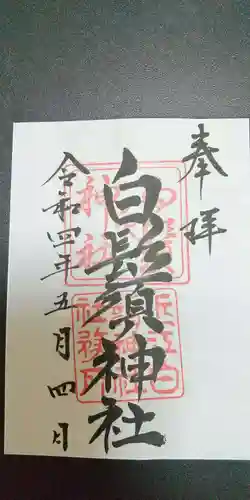 奉拝
白鬚神社
令和四年五月四日